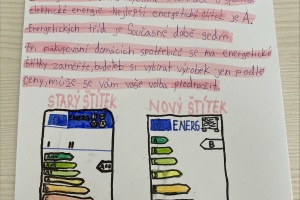 elektrické energie. Nejlepší energetický štítek je A.
Energetických tříd je současné době sedm.
Při nakupování domácích spotřebičů se na energetické
štítky zaměřte, budete si vybírat výrobek jen podle
ceny, může se vám vaše volba prodražit.
STARÝ ŠTÍTEK NOVÝ ŠTÍTEK
ENERG ENERG
B